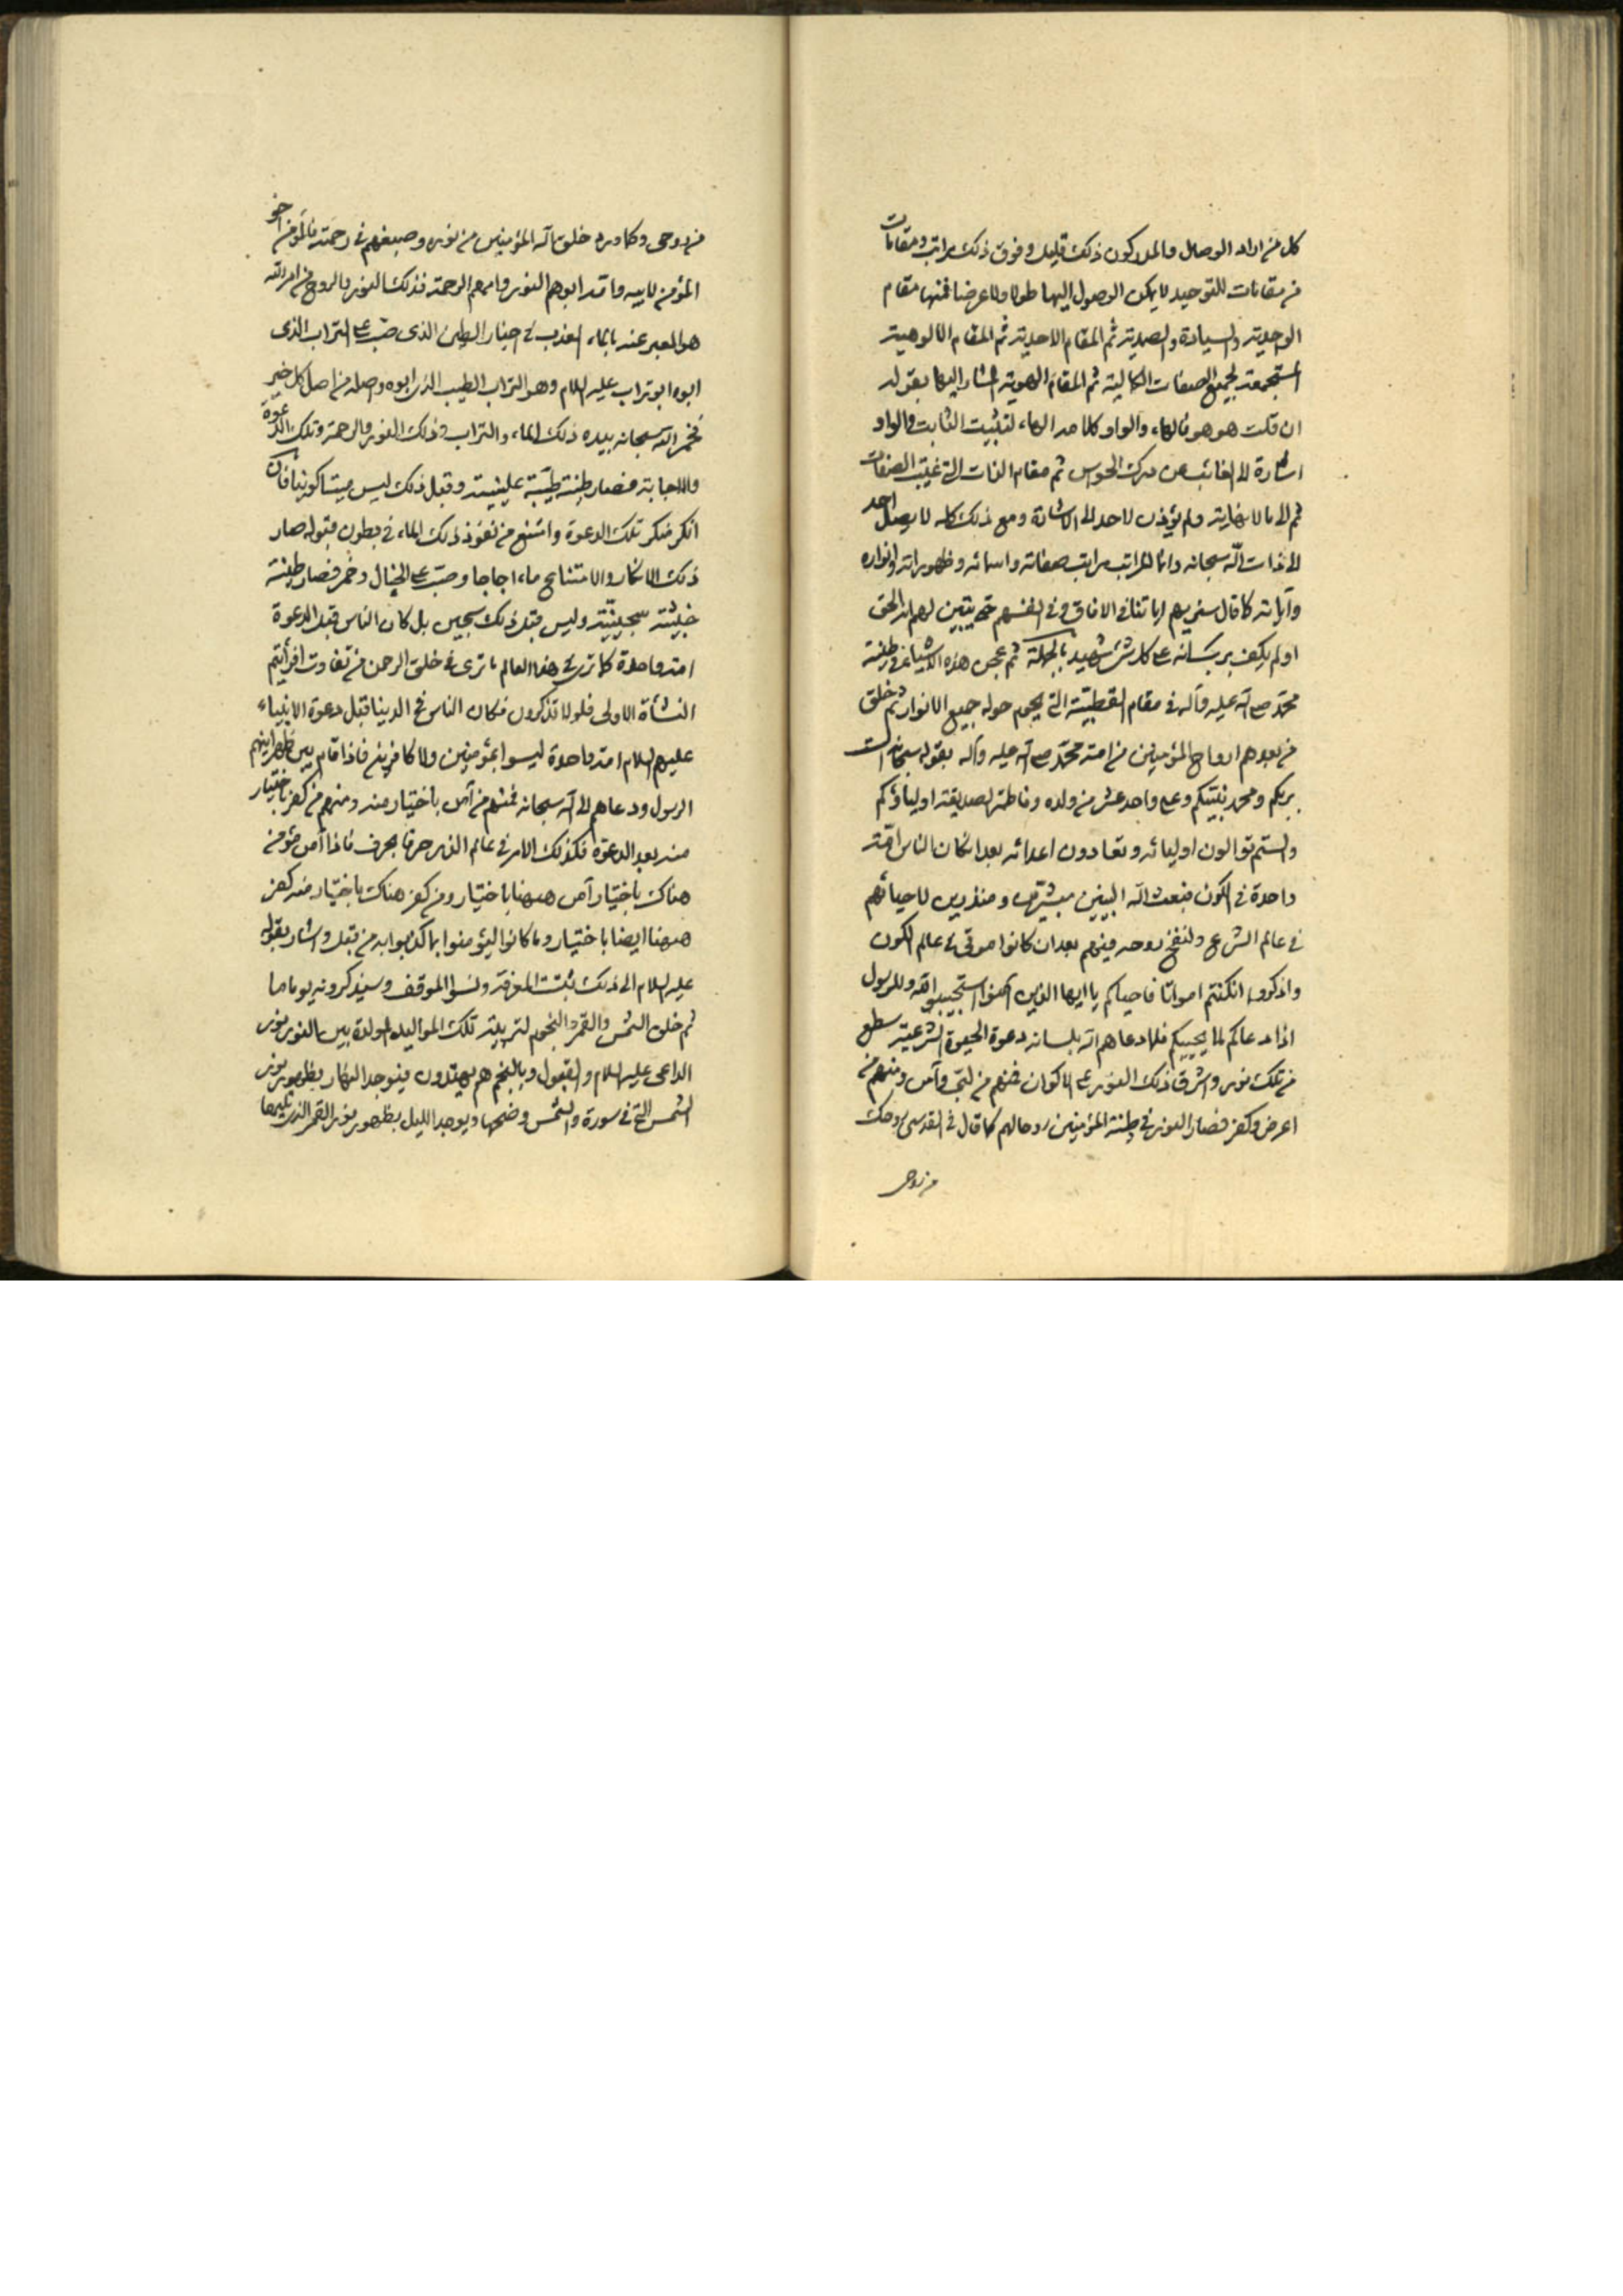 كل من اراد الوصال والمدركون ذلك قليل وفوق ذلك مراتب ومقامات
من مقامات التوحيد لا يمكن الوصول اليها طولا ولا عرضا فمنها مقام
الوحدية والسيادة والصمدية ثم المقام الاحدية ثم المقام الالوهية
المستجمعة لجميع الصفات الكمالية ثم المقام الهوية المشار اليها بقوله
ان قلت هو هو فالهاء والواو كلامه الهاء لتثبيت الثابت والواو
اشارة الى الغائب عن درك الحواس ثم مقام الذات التى غيبت الصفات
ثم الى ما لا نهاية ولم يؤذن لاحد الى الاشارة ومع ذلك كله لا يصل احد
الى ذات الله سبحانه وانما المراتب مراتب صفاته واسمائه وظهوراته وانواره
وآياته كما قال سنريهم اياتنا فى الافاق وفى انفسهم حتى يتبين لهم انه الحق
اولم يكف بربك انه على كل شئ شهيد بالجملة ثم عجن هذه الاشياء فى طينة
محمد صلى الله عليه وآله فى مقام القطبية التى يحوم حوله جميع الانوار ثم خلق
من بعدهم ارواح المؤمنين من امة محمد صلى الله عليه وآله بقوله سبحانه الست
بربكم ومحمد نبيكم وعلى واحد عشر من ولده وفاطمة الصديقة اولياؤكم
والستم توالون اوليائه وتعادون اعدائه بعد ان كان الناس امة
واحدة فى الكون فبعث الله النبيين مبشرين ومنذرين لاحيائهم
فى عالم الشرع ولنفخ روحه فيهم بعد ان كانوا موتى فى عالم الكون
واذكروا انكنتم امواتا فاحياكم يا ايها الذين امنوا استجيبوا لله وللرسول
اذا دعاكم لما يحييكم فلما دعاهم الله بلسانه دعوة الحيوة الشرعية سطع
من تلك نور واشرق ذلك النور على الاكوان فمنهم من لبى وآمن ومنهم من
اعرض وكفر فصار النور فى طينة المؤمنين روحا لهم كما قال فى القدسى روحك
من روحى
من روحى وكما ورد خلق الله المؤمنين من نوره وصبغهم فى رحمته فالمؤمن اخو
المؤمن لابيه وامه ابوهم النور وامهم الرحمة فذلك النور والروح من امر الله
هو المعبر عنه بالماء العذب فى اخبار الطين الذى صب على التراب الذى
ابوه ابو تراب عليه السلام وهو التراب الطيب الذى ابوه واصله من اصل كل خير
فخمر الله سبحانه بيده ذلك الماء والتراب وذلك النور والرحمة وتلك الدعوة
والاجابة فصار طينة طيبة عليينية وقبل ذلك ليس ميتا كونيا فان
انكر منكر تلك الدعوة وامتنع من نفوذ ذلك الماء فى بطون قبوله صار
ذلك الانكار والامتناع ماء اجاجا وصب على الخبال وخمر فصار طينة
خبيثة سجينية وليس قبل ذلك سجين بل كان الناس قبل الدعوة
امة واحدة كما ترى فى هذا العالم ما ترى فى خلق الرحمن من تفاوت افرأيتم
النشأة الاولى فلولا تذكرون فكان الناس فى الدنيا قبل دعوة الانبياء
عليهم السلام امة واحدة ليسوا بمؤمنين ولا كافرين فاذا قام بين ظهرانيهم
الرسول ودعاهم الى الله سبحانه فمنهم من آمن باختيار منه ومنهم من كفر باختيار
منه بعد الدعوة فكذلك الامر فى عالم الذر حرفا بحرف فاذا آمن مؤمن
هناك باختيار آمن ههنا باختيار ومن كفر هناك باختيار منه كفر
ههنا ايضا باختيار وما كانوا ليؤمنوا بما كذبوا به من قبل واشار بقوله
عليه السلام الى ذلك ثبتت المعرفة ونسوا الموقف وسيذكرونه يوما ما
ثم خلق الشمس والقمر والنجوم لتربية تلك المواليد المولدة بين النور نور
الداعى عليه السلام والقبول وبالنجم هم يهتدون فيوجد النهار بظهور نور
الشمس التى فى سورة والشمس وضحيها ويوجد الليل بظهور نور القمر الذى تليها